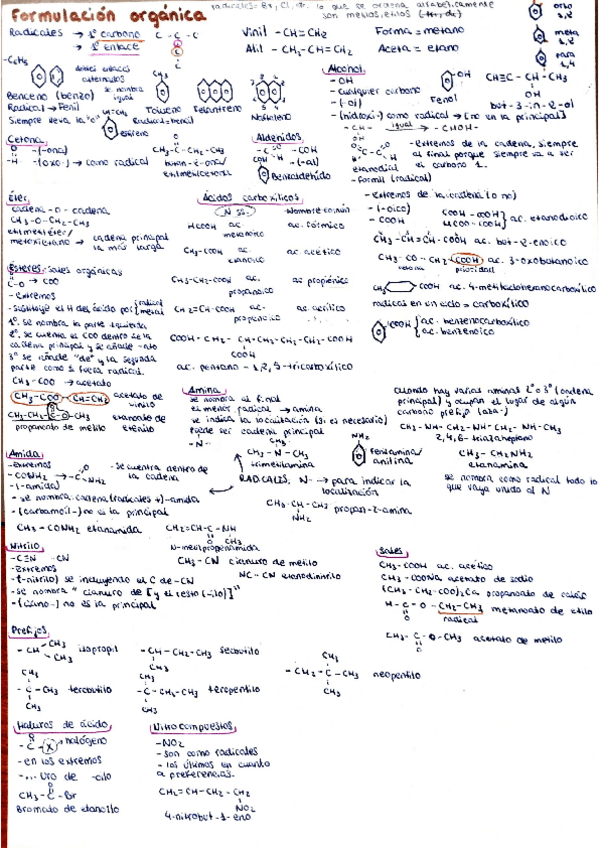 Formulación orgánica
radicales = Br, Cl, etc. lo que se ordena alfabéticamente
son menos, etilos (-ter, dic)
Radicales → 1º carbono
→ 1º enlace
C - C - C
C
C
Vinil - CH=CH₂
Alil - CH₂-CH=CH₂
Forma = metano
Aceta = etano
orto
1,2
meta
1,3
para
1,4
-C₆H₅
dobles enlaces
alternados
Benceno (benzo)
se nombra
igual
Radical → Fenil
Siempre lleva la "o"
CH₃
Tolueno
Radical = bencil
estireno
Fenantreno
Naftaleno
Alcohol
- OH
- cualquier carbono
- (-ol)
- (hidroxi-) como radical → [no en la principal]
- CH - igual → - CHOH -
OH
Fenol
CH≡C - CH - CH₃
OH
but-3-in-2-ol
Cetona
-(-ona)
-(oxo-) → como radical
CH₃-C-CH₂-CH₃
butan-2-ona/
etilmetilcetona
Aldehídos
-(-al)
Benzaldehído
- extremos de la cadena, siempre
al final porque siempre va a ser
el carbono 1.
etanodial
- formil (radical)
Éter
cadena -O- cadena
CH₃-O-CH₂-CH₃
etilmetiléter/
metoxietano → cadena principal
la más larga
Ácidos carboxílicos
Nombre común
HCOOH ac. metanoico
ac. fórmico
CH₃-COOH ac. etanoico
ac. acético
CH₃-CH₂-COOH ac. propanoico
ac. propiónico
CH₂=CH-COOH ac. propenoico
ac. acrílico
COOH-CH₂-CH-CH₂-CH₂-CH₂-COOH
COOH
ac. pentano - 1,2,5-tricarboxílico
- extremos de la cadena (o no)
- (-oico)
- COOH
COOH-COOH
HCOO-COOH
ac. etanodioico
CH₃-CH=CH-COOH ac. but-2-enoico
CH₃-CO-CH₂-COOH ac. 3-oxobutanoico
cetona
prioridad
CH₃
COOH ac. 4-metilciclohexanocarboxílico
radical en un ciclo = carboxílico
COOH
ac. bencenocarboxílico
ac. benzenoico
Ésteres: sales orgánicas
C-O → COO
- Extremos
- Sustituye el H del ácido por
radical
metal
1º, se nombra la parte izquierda
2º, se cuenta el COO dentro de la
cadena principal y se añade -ato
3º se añade "de" y la segunda
parte como si fuera radical.
CH₃-COO → acetato
CH₃-COO-CH=CH₂ acetato de
vinilo
etanoato de
etenilo
propanoato de metilo
Amina
se nombra al final
el menor radical → amina
se indica la localización (si es necesario)
puede ser cadena principal
- N -
CH₃
CH₃-N-CH₃
trimetilamina
NH₂
fenilamina/
anilina
cuando hay varias aminas 2º o 3º (cadena
principal) y ocupan el lugar de algún
carbono prefijo (aza-)
CH₃-NH-CH₂-NH-CH₂-NH-CH₃
2,4,6-triazaheptano
CH₃-CH₂NH₂
etanamina
se nombra como radical todo lo
que vaya unido al N
RADICALES, N- → para indicar la
localización
CH₃-CH-CH₃
NH₂
propan-2-amina
Amida
- Extremos
- CONH₂ →
- se cuentra dentro de
la cadena
- (-amida)
- se nombra cadena (radicales +)-amida
- (carbamoil-) no es la principal
CH₃-CONH₂ etanamida
CH₂=CH-C-NH
O CH₃
N-metilpropenamida
Nitrilo
- C≡N -CN
- Extremos
- (-nitrilo) se incluyendo el C de -CN
- se nombra "cianuro de [y el resto (-ilo)]"
- (ciano-) no es la principal
CH₃-CN cianuro de metilo
NC-CN etanodinitrilo
Sales
CH₃-COOH ac. acético
CH₃-COONa acetato de sodio
(CH₃-CH₂-COO)₂Ca propanoato de calcio
H-C-O-CH₂-CH₃ metanoato de etilo
radical
CH₃-C-O-CH₃ acetato de metilo
Prefijos
- CH-CH₃
CH₃
isopropil
- CH-CH₂-CH₃ secbutilo
CH₃
CH₃
- C-CH₃ tercbutilo
CH₃
CH₃
- C-CH₂-CH₃ tercpentilo
CH₃
CH₃
- CH₂-C-CH₃ neopentilo
CH₃
Haluros de ácido
- C-X → halógeno
- en los extremos
- ... uro de -oilo
CH₃-C-Br
Bromuro de etanoilo
Nitrocompuestos
- NO₂
- son como radicales
- los últimos en cuanto
a preferencias.
CH₂=CH-CH₂-CH₂
NO₂
4-nitrobut-1-eno